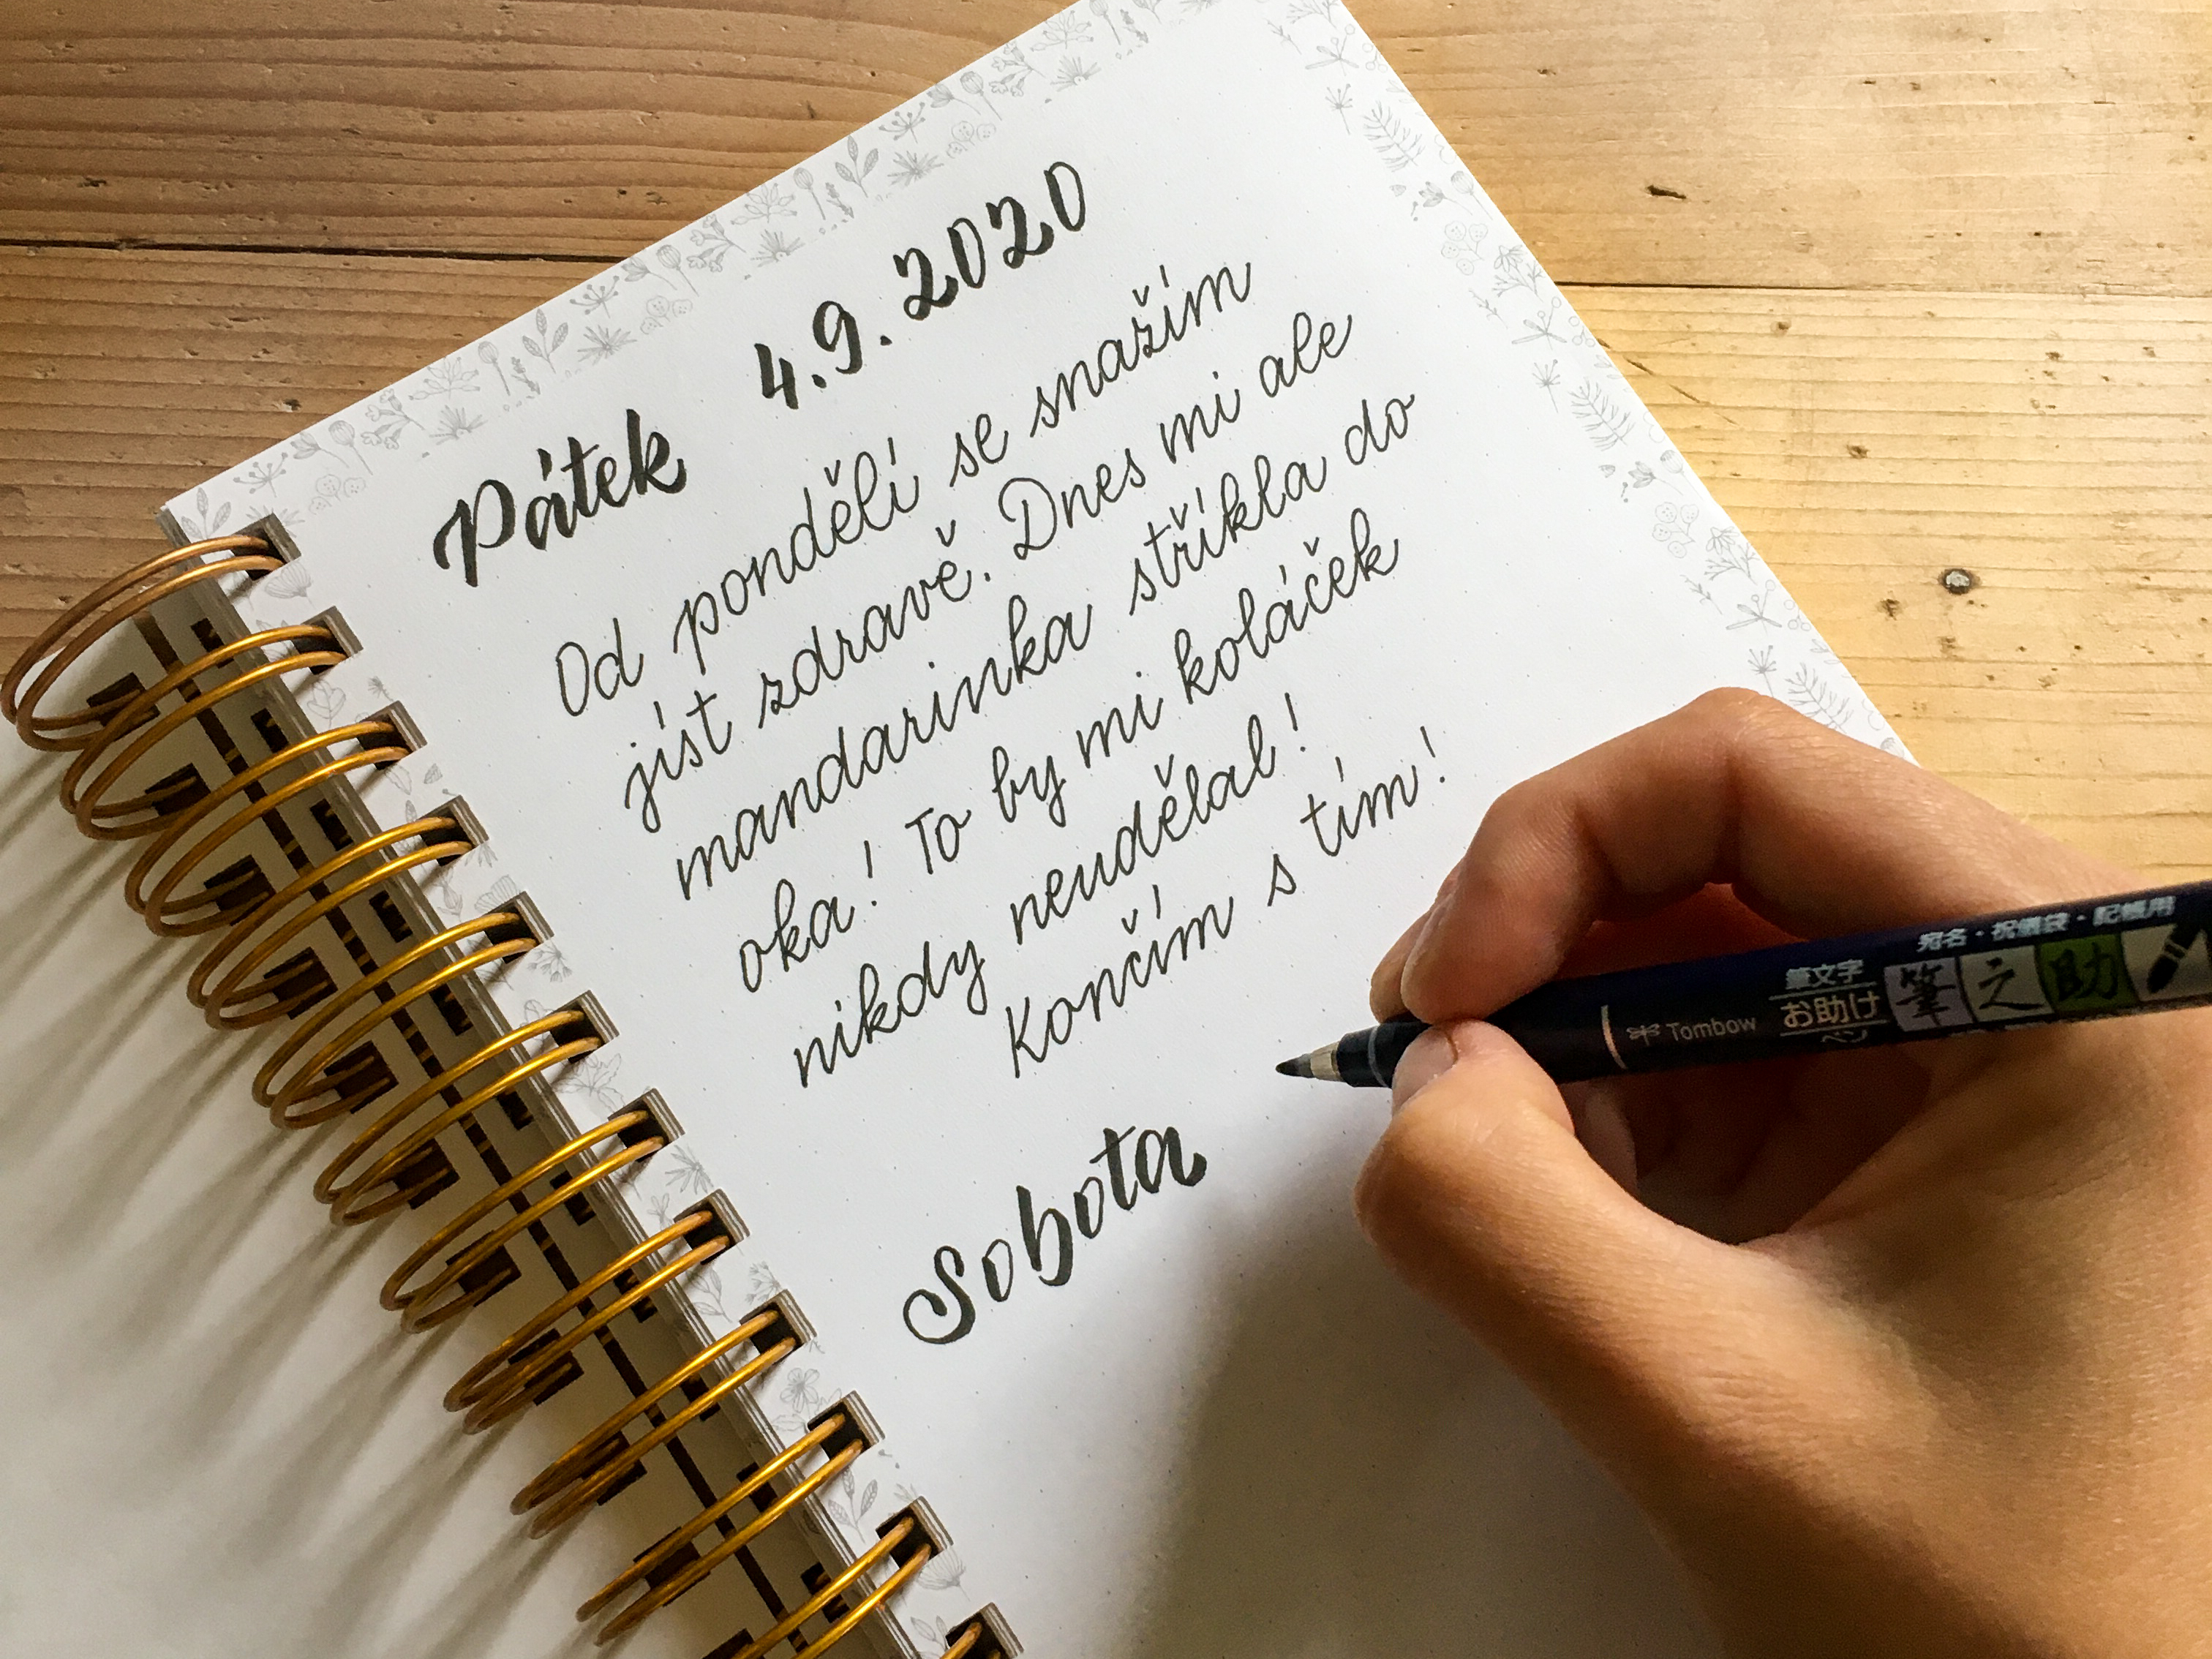 Pátek 4.9.2020
Od pondělí se snažím
jíst zdravě. Dnes mi ale
mandarinka stříkla do
oka! To by mi koláček
nikdy neudělal!
Končím s tím!
Sobota
Tombow
筆文字
お助け
ペン
筆之助
宛名・祝儀袋・記帳用